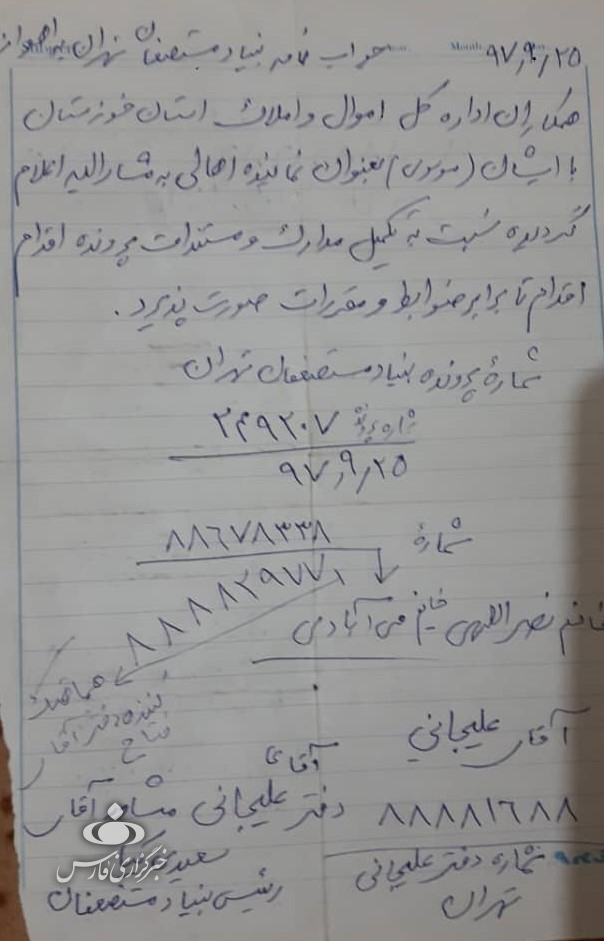 جواب نامه بنیاد مستضعفان تهران به اهواز
۹۷,۹,۲۵
همکاران اداره کل اموال و املاک استان خوزستان
با ایشان (موسوی) بعنوان نماینده اهالی به مشارالیه اعلام
گردیده نسبت به تکمیل مدارک و مستندات پرونده اقدام
اقدام تا برابر ضوابط و مقررات صورت پذیرد.
شمارهٔ پرونده بنیاد مستضعفان تهران
۲۴۹۲۰۷
۹۷,۹,۲۵
شمارهٔ ۸۸۶۷۸۳۳۸
خانم نصراللهی خانم آبادی
هماهنگ
کننده دفتر آقای
فتاح
آقای علیجانی
۸۸۸۸۱۶۸۸
شماره دفتر علیجانی
تهران
آقای
دفتر علیجانی مشاور آقای
سعیدی
رئیس بنیاد مستضعفان
خبرگزاری فارس